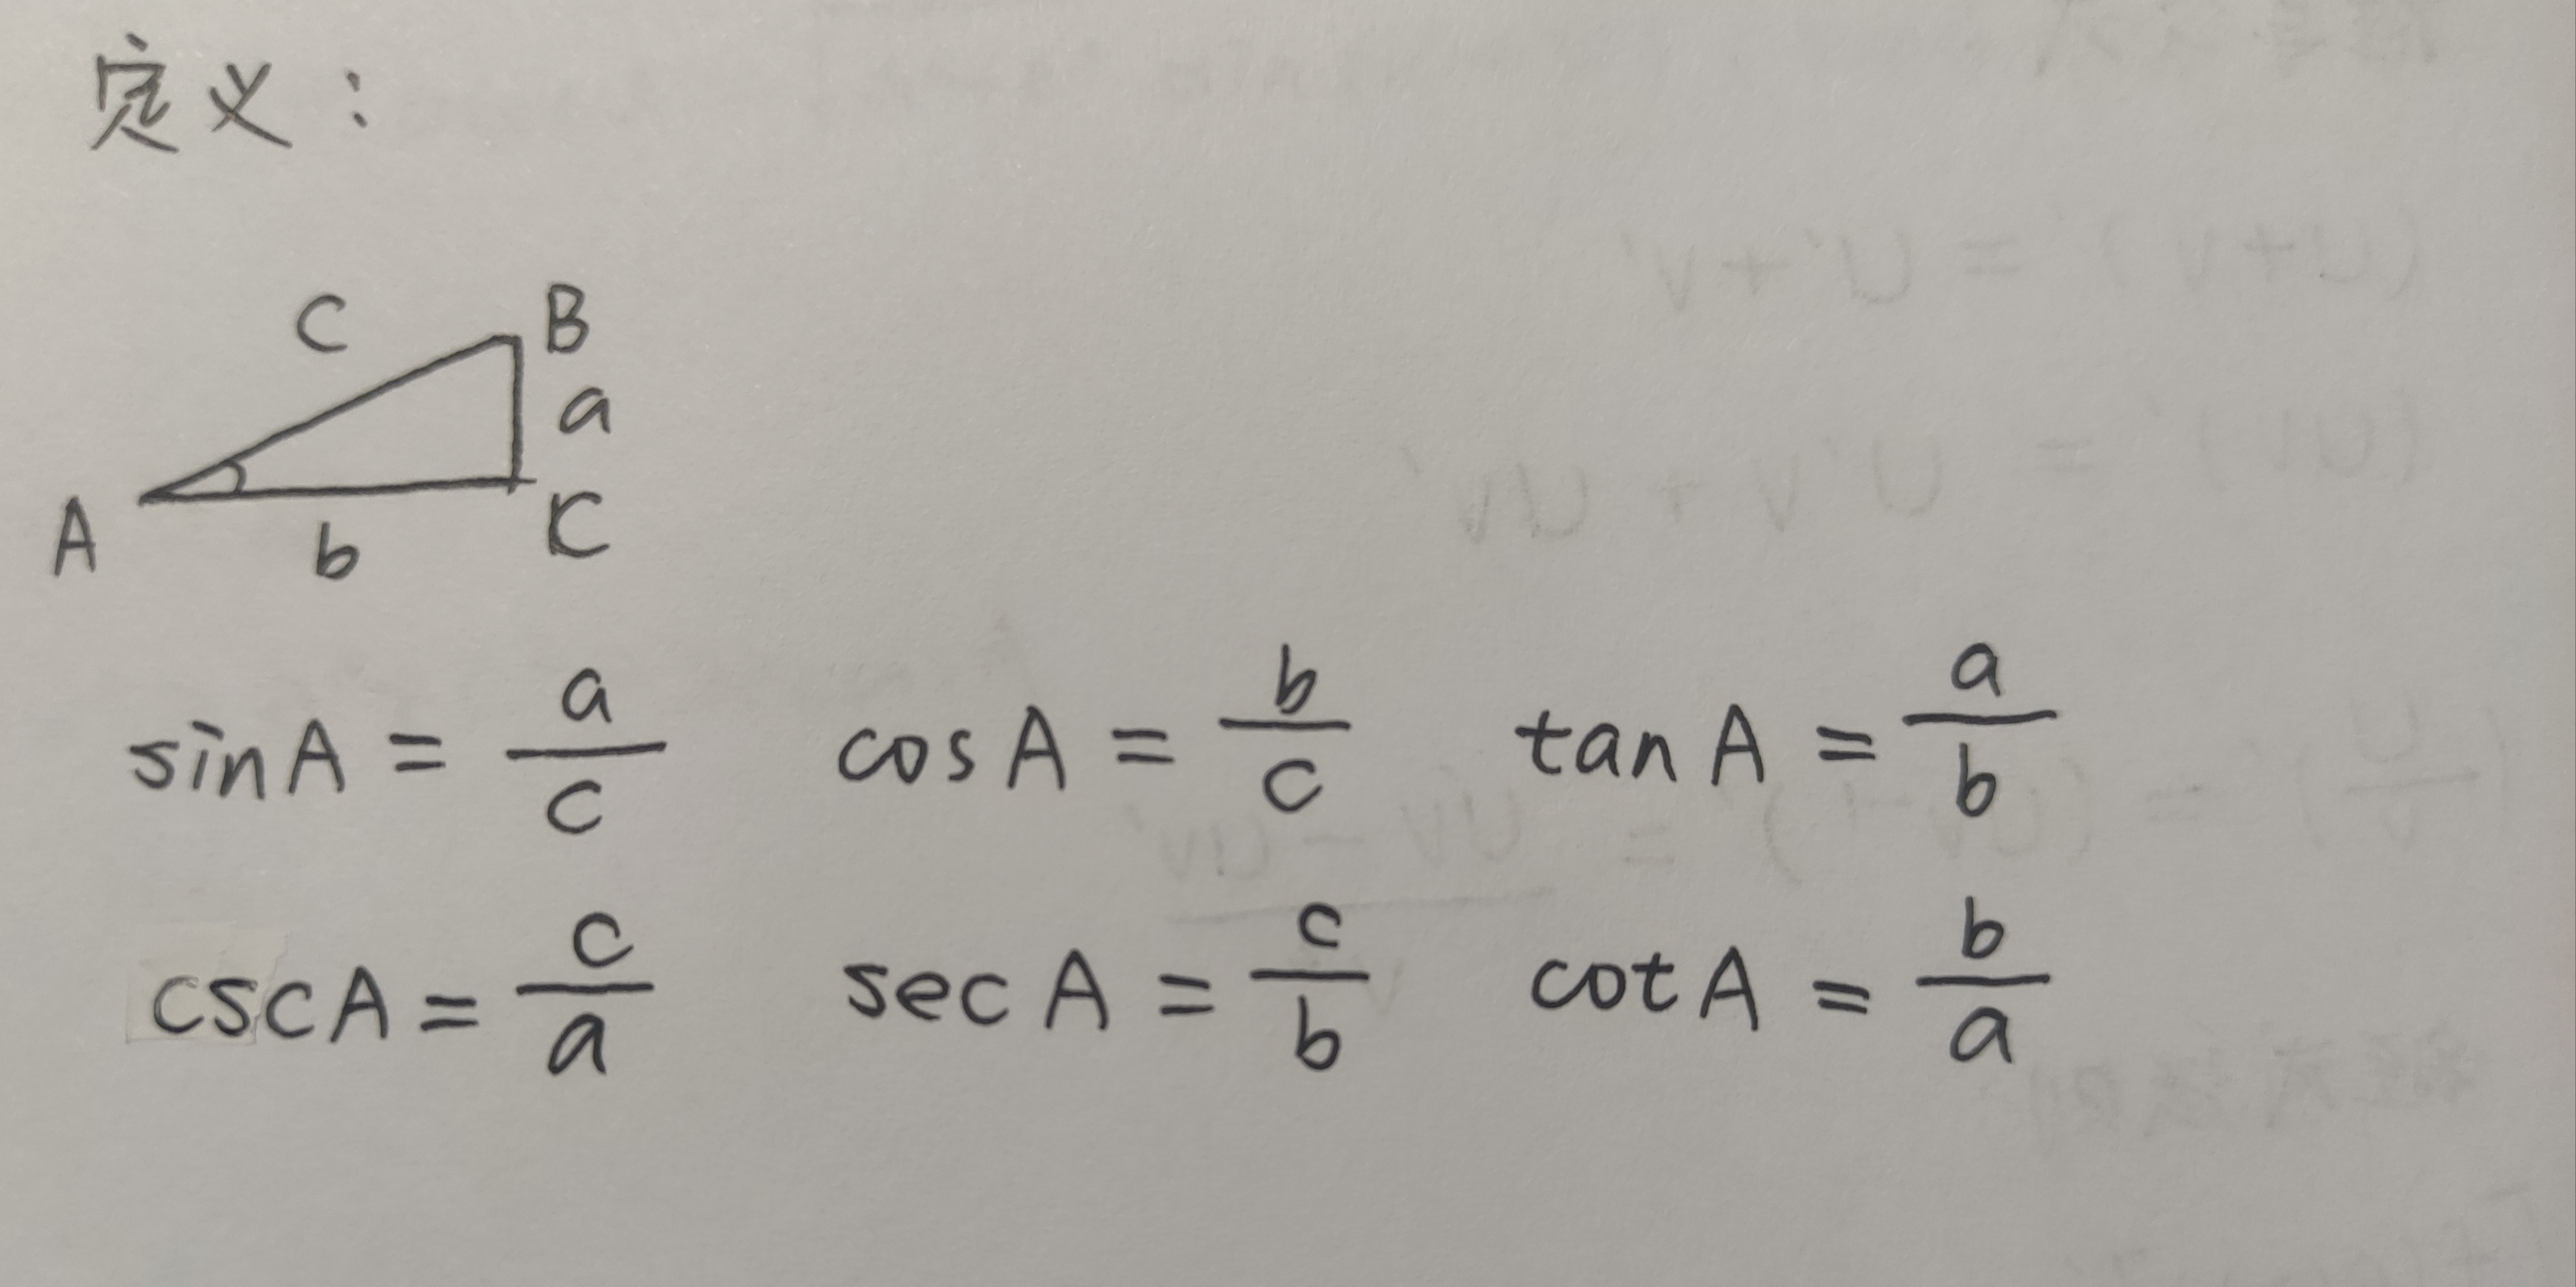 定义：
c B
a
A b C
sin A = a/c cos A = b/c tan A = a/b
csc A = c/a sec A = c/b cot A = b/a